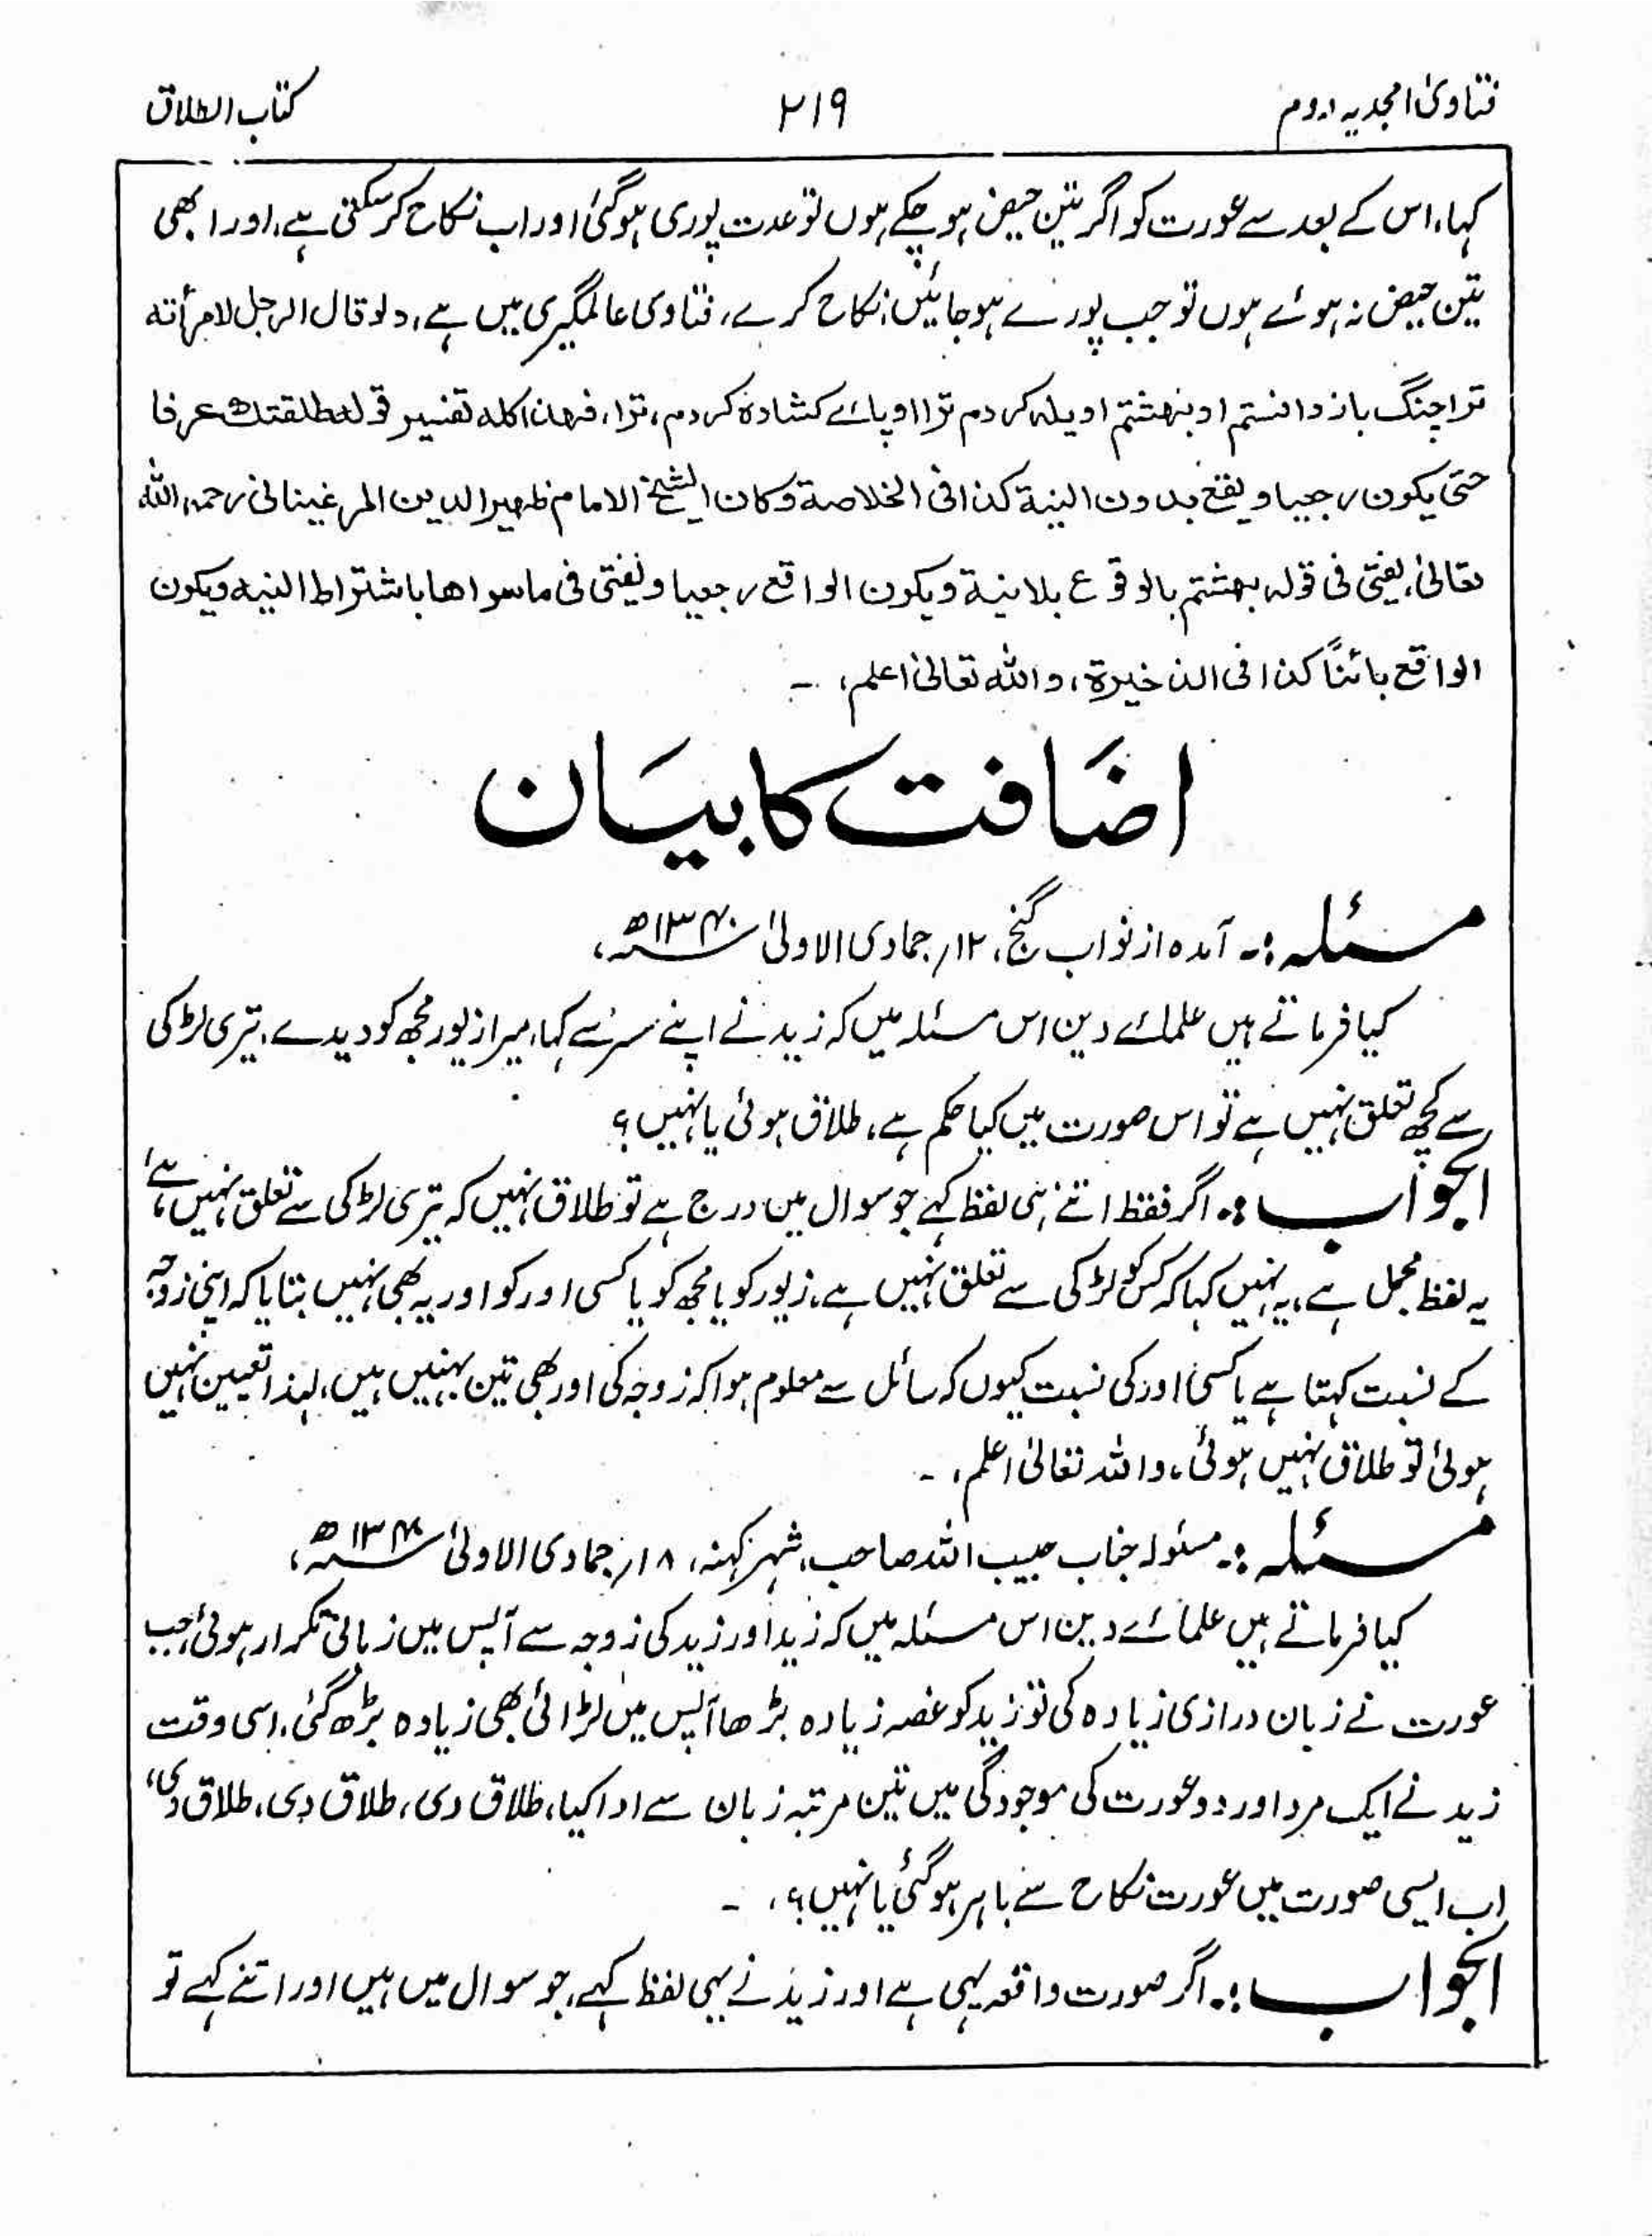 فتاویٰ امجدیہ دوم ۲۱۹ کتاب الطلاق
کہا، اس کے بعد سے عورت کو اگر تین حیض ہو چکے ہوں تو عدت پوری ہو گئی اور اب نکاح کر سکتی ہے، اور ابھی
تین حیض نہ ہوئے ہوں تو جب پورے ہو جائیں، نکاح کرے، فتاوی عالمگیری میں ہے، ولو قال الرجل لامرأته
ترا چنگ باز داشتم او بهشتم او یله کردم ترا او پائے کشاده کردم، ترا، فهذا كله تفسير قوله طلقتك عرفا
حتى يكون رجعيا ويقع بدون النية كذا فى الخلاصة وكان الشيخ الامام ظهير الدين المرغينانى رحمه الله
تعالىٰ، يفتى فى قوله بهشتم بالوقوع بلا نية ويكون الواقع رجعيا ويفتى فى ماسواها باشتراط النية ويكون
الواقع بائناً كذا فى الذخيرة، والله تعالىٰ اعلم، ۔
اضافت کا بیان
مسئلہ :۔ آمدہ از نواب گنج، ۱۲؍ جمادی الاولیٰ ۱۳۴۰ھ،
کیا فرماتے ہیں علمائے دین اس مسئلہ میں کہ زید نے اپنے سسر سے کہا، میرا زیور مجھ کو دیدے، تیری لڑکی
سے کچھ تعلق نہیں ہے تو اس صورت میں کیا حکم ہے، طلاق ہوئی یا نہیں؟
الجواب :۔ اگر فقط اتنے ہی لفظ کہے جو سوال میں درج ہے تو طلاق نہیں کہ تیری لڑکی سے تعلق نہیں ہے،
یہ لفظ مجمل ہے، یہ نہیں کہا کہ کس کو لڑکی سے تعلق نہیں ہے، زیور کو یا مجھ کو یا کسی اور کو اور یہ بھی نہیں بتایا کہ اپنی زوجہ
کے نسبت کہتا ہے یا کسی اور کی نسبت کیوں کہ سائل سے معلوم ہوا کہ زوجہ کی اور بھی تین بہنیں ہیں، لہذا تعیین نہیں
ہوئی تو طلاق نہیں ہوئی، واللہ تعالیٰ اعلم، ۔
مسئلہ :۔ مسئولہ جناب حبیب اللہ صاحب، شہر کہنہ، ۱۸؍ جمادی الاولیٰ ۱۳۴۰ھ،
کیا فرماتے ہیں علمائے دین اس مسئلہ میں کہ زید اور زید کی زوجہ سے آپس میں زبانی تکرار ہوئی، جب
عورت نے زبان درازی زیادہ کی تو زید کو غصہ زیادہ بڑھا آپس میں لڑائی بھی زیادہ بڑھ گئی، اسی وقت
زید نے ایک مرد اور دو عورت کی موجودگی میں تین مرتبہ زبان سے ادا کیا، طلاق دی، طلاق دی، طلاق دی،
اب ایسی صورت میں عورت نکاح سے باہر ہو گئی یا نہیں؟، ۔
الجواب :۔ اگر صورت واقعہ یہی ہے اور زید نے یہی لفظ کہے، جو سوال میں ہیں اور اتنے کہے تو